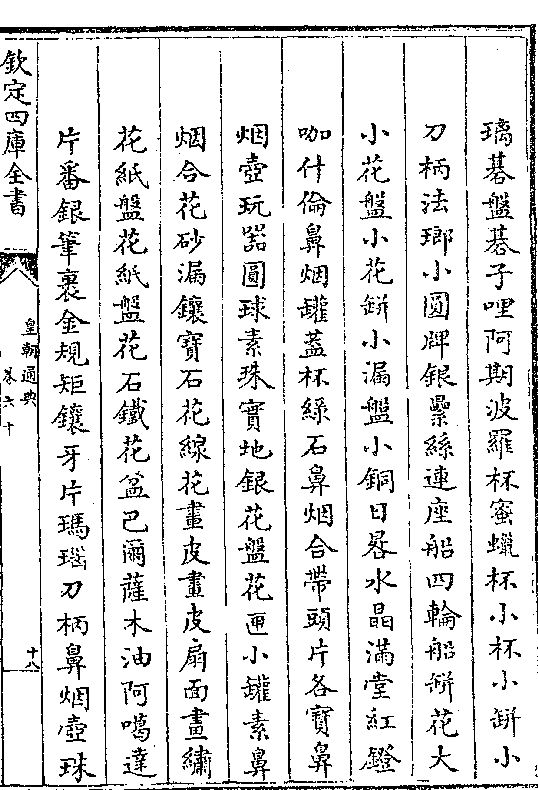 璃碁盤碁子哩阿期波羅杯蜜蠟杯小杯小缾小
刀柄法瑯小圓牌銀纍絲連座船四輪船缾花大
小花盤小花缾小漏盤小銅日晷水晶滿堂紅鐙
咖什倫鼻烟罐蓋杯綠石鼻烟合帶頭片各寶鼻
烟壺玩器圓球素珠寶地銀花盤花匣小罐素鼻
烟合花砂漏鑲寶石花線花畫皮畫皮扇面畫繡
花紙盤花紙盤花石鐵花盆巴爾薩木油阿噶達
片番銀筆裹金規矩鑲牙片瑪瑙刀柄鼻烟壺珠
欽定四庫全書
皇朝通典
卷六十
十八